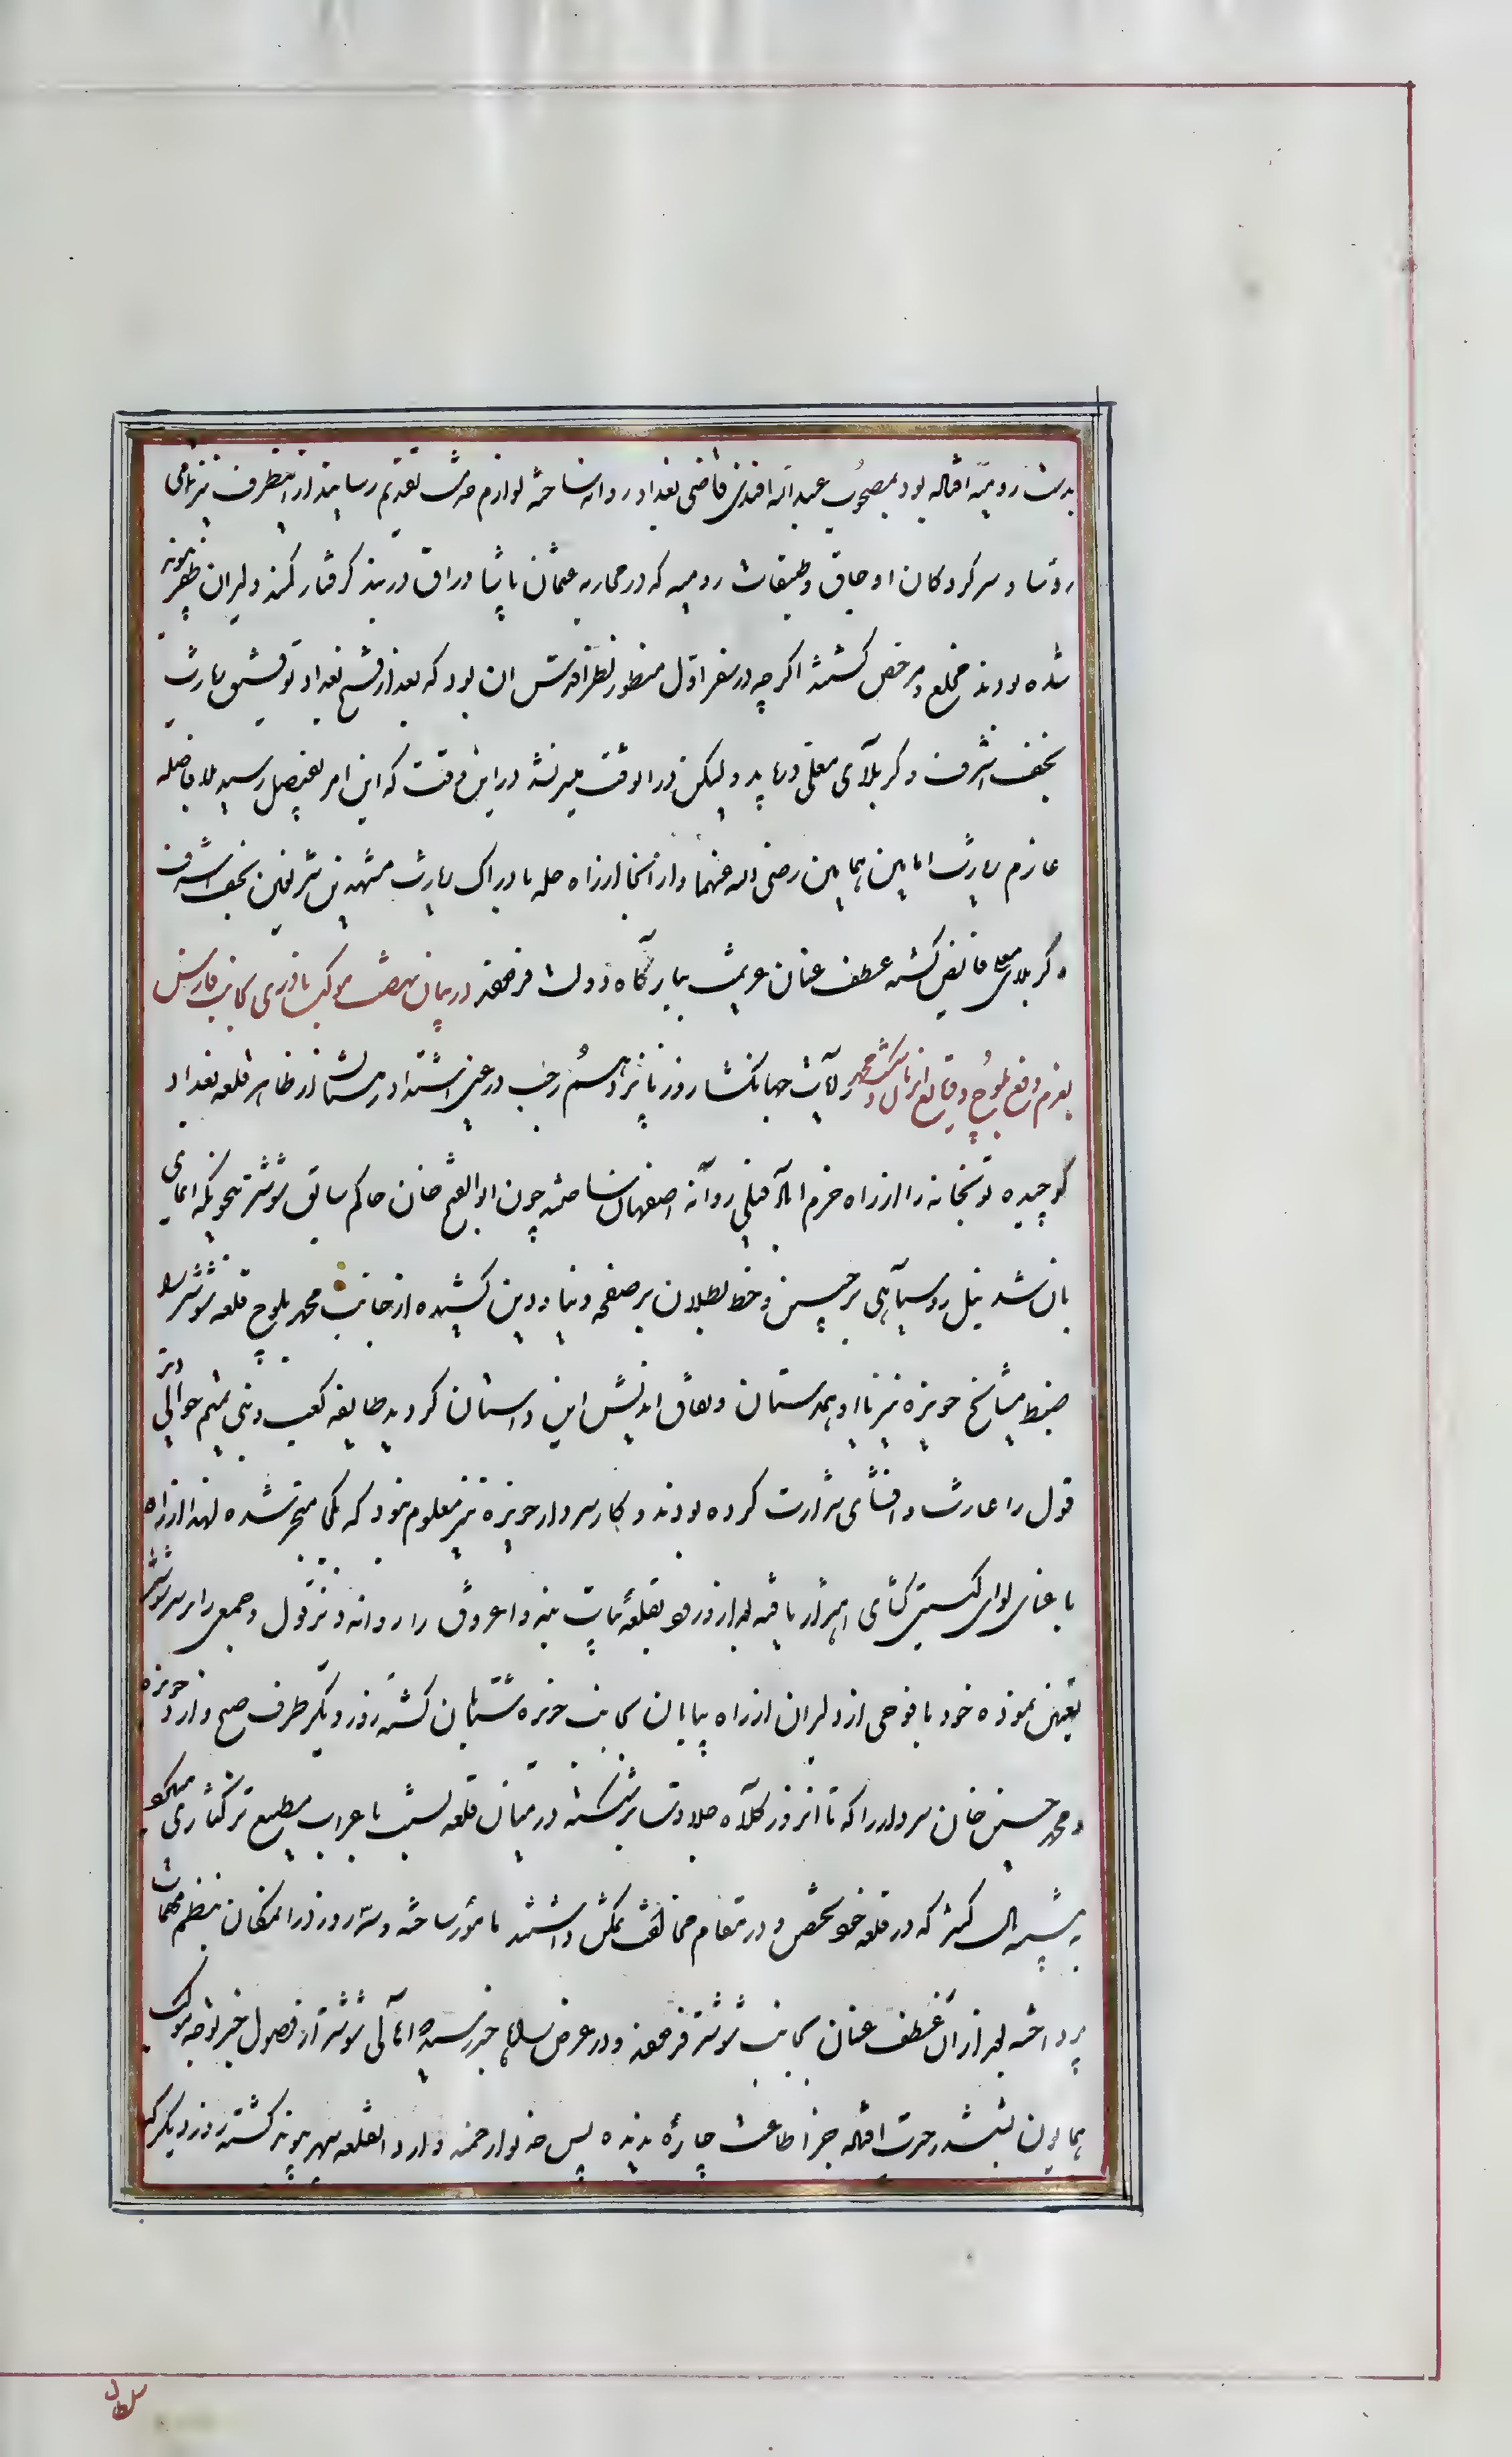 بدست رومیه افتاده بود بمصحوب عبداله افندی قاضی بغداد روانه ساخته لوازم خدمت بتقدیم رسانید از اینطرف نیز تمامی
رؤسا و سرکردکان اوجاق وطبقات رومیه که در محاربه عثمان پاشا در اق دربند کرفتار کمند دلیران ظفرنمون
شده بودند مخلع و مرخص کشتند اکرچه در سفر اول منظور نظر اقدس ان بود که بعد از فتح بغداد توفیق زیارت
نجف اشرف و کربلای معلی دریابد ولیکن در انوقت میسر نشد در این وقت که این امر بفیصل رسید بلا فاصله
عازم زیارت امامین همامین رضی اله عنهما و از انجا از راه حله بادراک زیارت مشهدین شریفین نجف اشرف
و کربلای معلی فایض کشته عطف عنان عزیمت ببارکاه دولت فرمودند در بیان نهضت موکب نادری بجانب فارس
بعزم دفع محمد بلوچ و وقایع انزمان رایات جهانکشا روز پانزدهم رجب در عین اشتداد زمستان از ظاهر قلعه بغداد
کوچیده توپخانه را از راه خرم اباد فیلی روانه اصفهان ساختند چون ابوالفتح خان حاکم سابق شوشتر بنحویکه ایمای
بان شد نیل روسیاهی بر جبین و خط بطلان بر صفحه دنیا و دین کشیده از جانب محمد بلوچ قلعه شوشتر را
ضبط و مشایخ حویزه نیز با او همدستان و نفاق اندیش این داستان کردید طایفه کعب و بنی تمیم حوالی دز
قول را غارت و افشای شرارت کرده بودند و کار سردار حویزه نیز معلوم نبود که بکجا منجر شده لهذا از راه
با غنای لوای کیتی کشای اهتزاز یافته بعد از ورود بقلعه بیات بنه و اعروق را روانه دزفول و جمعی را بر سر شوشتر
تعیین نموده خود با فوجی از دلیران از راه بیابان بجانب حویزه شتابان کشته روز دیکر طرف صبح وارد حویزه
و محمد حسین خان سردار را که تا انروز کلاه جلادت بر شکسته در میان قلعه نشسته با عراب مطیع ترکتازی میکرد
به تنبیه ال کثیر که در قلعه خود متحصن و در مقام مخالفت تمکن داشتند مامور ساخته و سه روز در انمکان بنظم مهمات
پرداخته بعد از ان عطف عنان بجانب شوشتر فرمودند و در عرض راه خبر رسید اهالی شوشتر از وصول خبر توجه موکب
همایون بششدر حیرت افتاده جز اطاعت چاره ندیده پس خدیو ارجمند وارد انقلعه سپهر پیوند کشته روز دیکر که